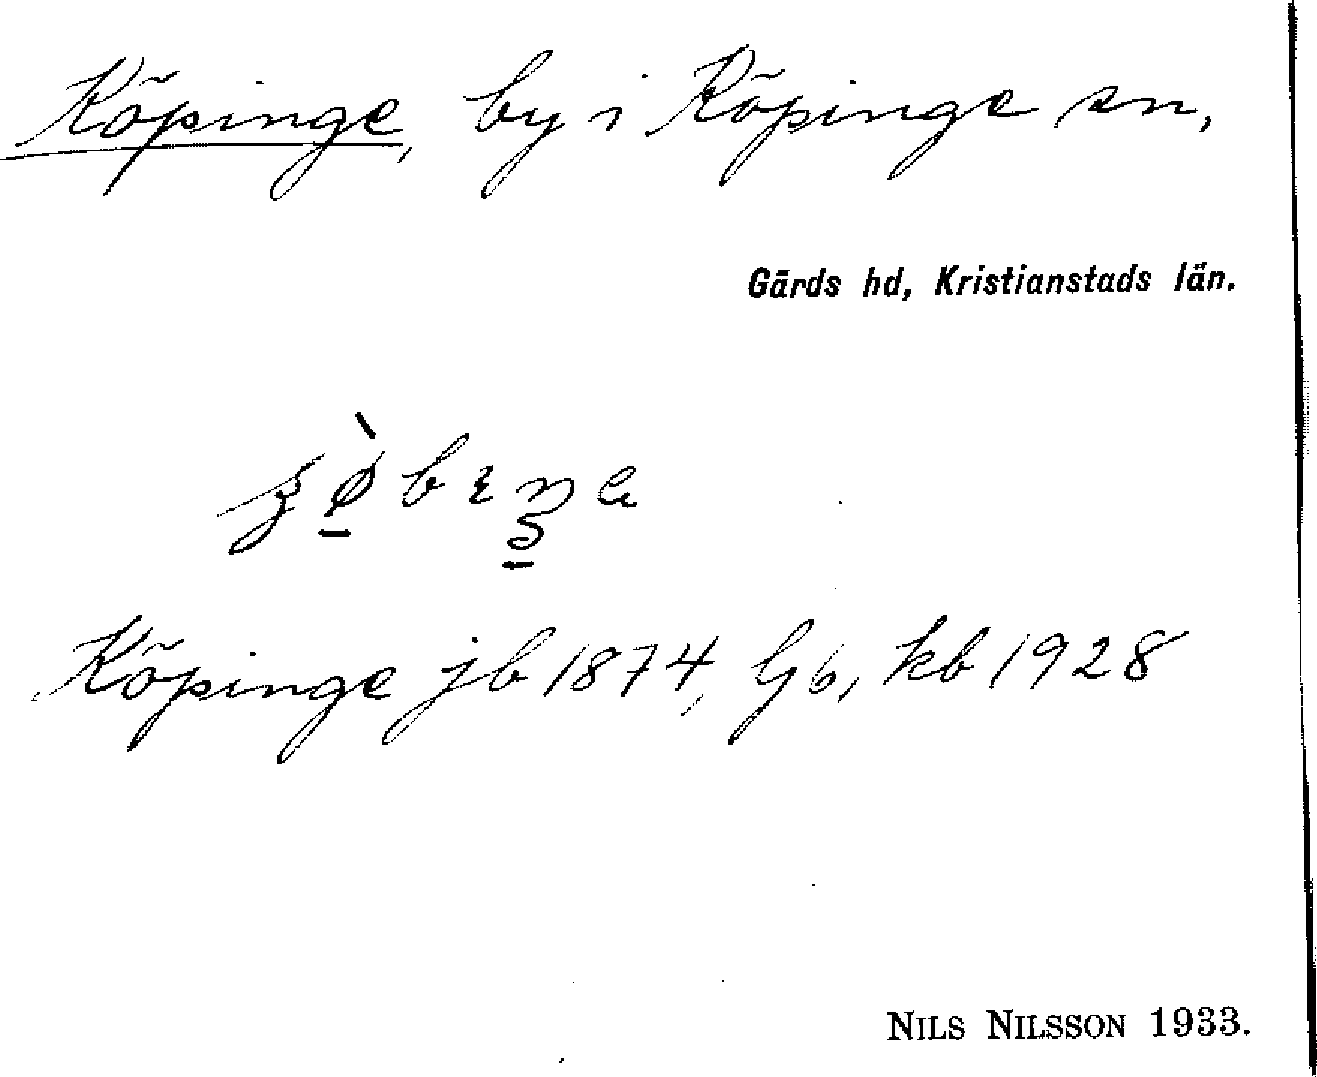 Köpinge, by i Köpinge sn,
Gärds hd, Kristianstads län.
Köpinge jb 1874, Gb, kb 1928
NILS NILSSON 1933.